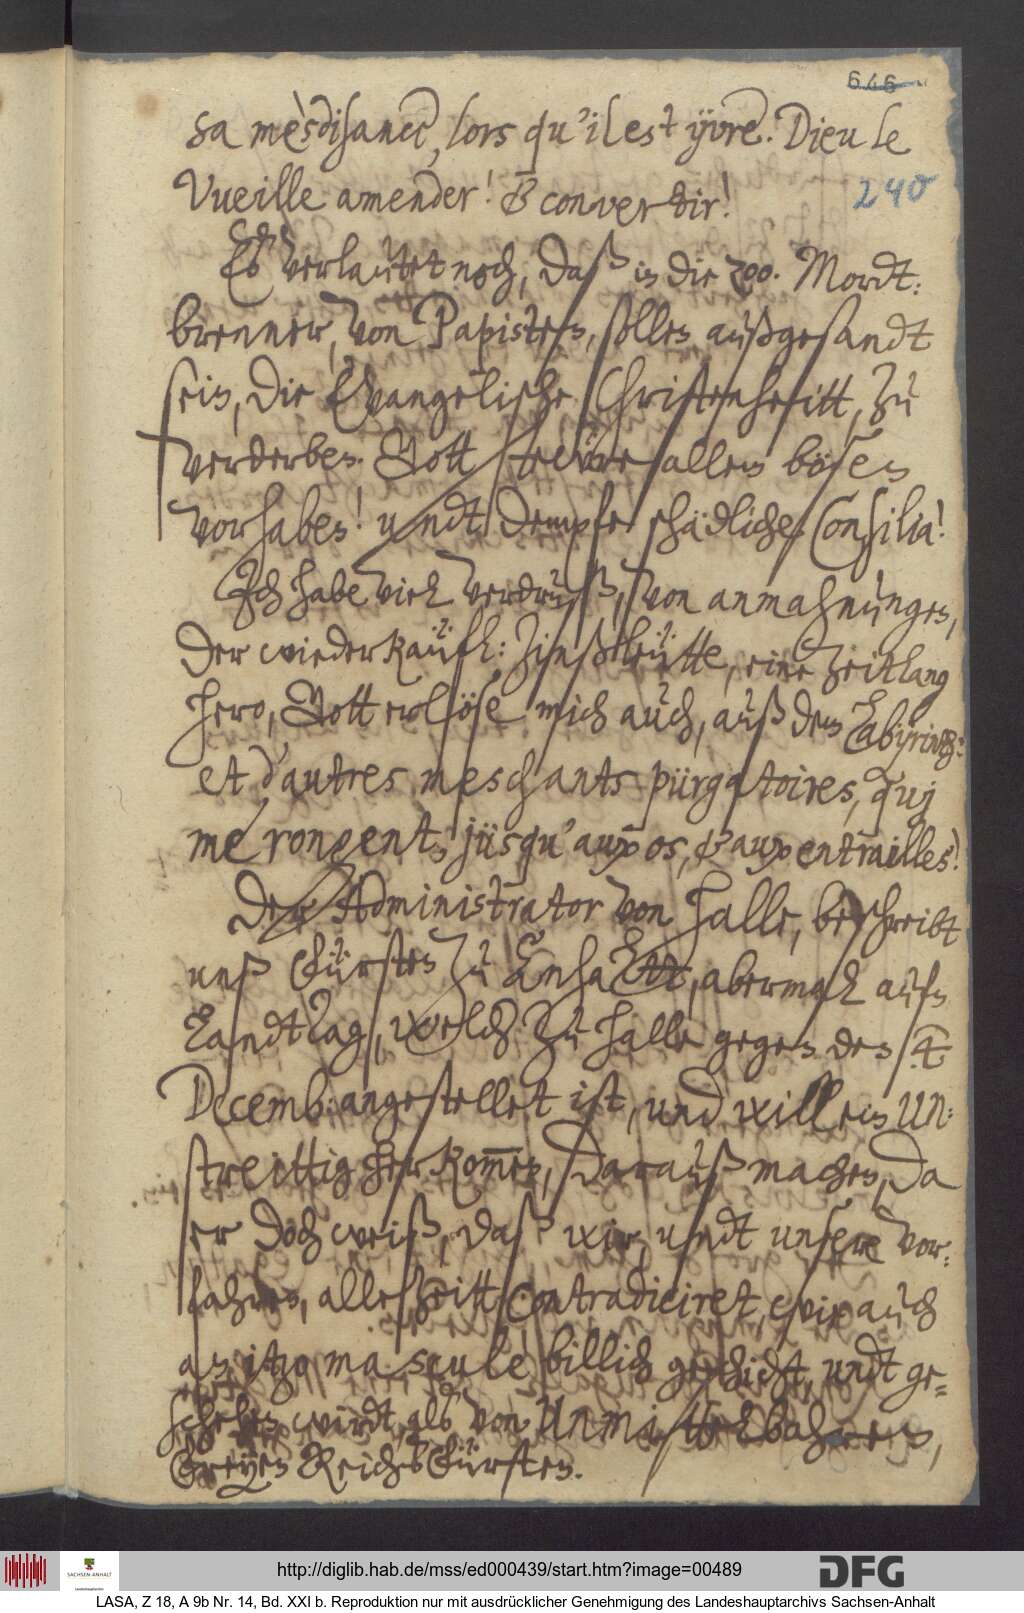 646
sa mèsdisance, lors qu'il est yvre. Dieu le
240
Vueille amender! & convertir!
Es verlautet noch, daß in die 700. Mordt:
brenner, von Papisten, sollen außgesandt
sein, die Evangelische Christenheitt, zu
verderben. Gott stewre allem bösen
vorhaben! undt dempfe schädliche Consilia!
Ich habe viel verdruß, von anmahnungen,
der wiederkaüfl: Zinßleütte, eine zeitlang
hero, Gott erlöse mich auch, auß dem Labyrinth:
et d'autres meschants pürgatoires, quj
me rongent, jüsqu'aux os, & aux entrailles!
Der Administrator von Halle, beschreibt
unß Fürsten zu Anhaltt, abermahl aufn
Landtag, welcher zu Halle gegen den 4.
Decemb: angestellet ist, und will ein un:
streittig herkommen, darauß machen, da
er doch weiß, daß wir, undt unsere vor:
fahren, allezeitt contradiciret, wie auch
an itzo masculè billich geschicht, undt ge=
schehen wirdt, als von Unmittelbahren,
Freyen ReichsFürsten.
http://diglib.hab.de/mss/ed000439/start.htm?image=00489
SACHSEN-ANHALT
Landeshauptarchiv
DFG
LASA, Z 18, A 9b Nr. 14, Bd. XXI b. Reproduktion nur mit ausdrücklicher Genehmigung des Landeshauptarchivs Sachsen-Anhalt